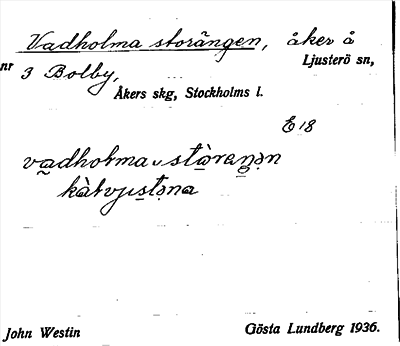 Vadholma storängen, åker å
Ljusterö sn,
nr 3 Bolby,
Åkers skg, Stockholms l.
E 18
va̰dholma stòraŋən
kàlvjustəna
John Westin
Gösta Lundberg 1936.